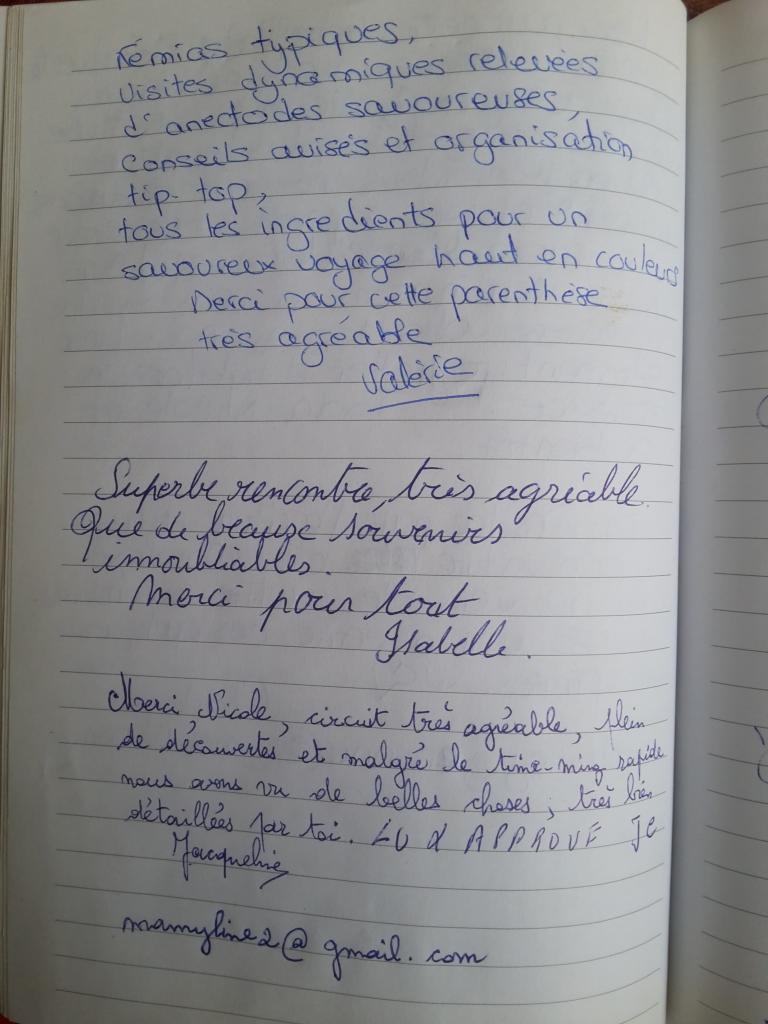 Rémias typiques,
visites dynamiques relevées
d'anectodes savoureuses,
conseils avisés et organisation
tip-top,
tous les ingredients pour un
savoureux voyage haut en couleurs
Merci pour cette parenthèse
très agréable
Valérie
Superbe rencontre, très agréable.
Que de beaux souvenirs
innoubliables.
Merci pour tout
Isabelle.
Merci Nicole, circuit très agréable, plein
de découvertes et malgré le time-ming rapide
nous avons vu de belles choses, très bien
détaillées par toi. LU & APPROUVE JC
Jacqueline
mamyline2@gmail.com